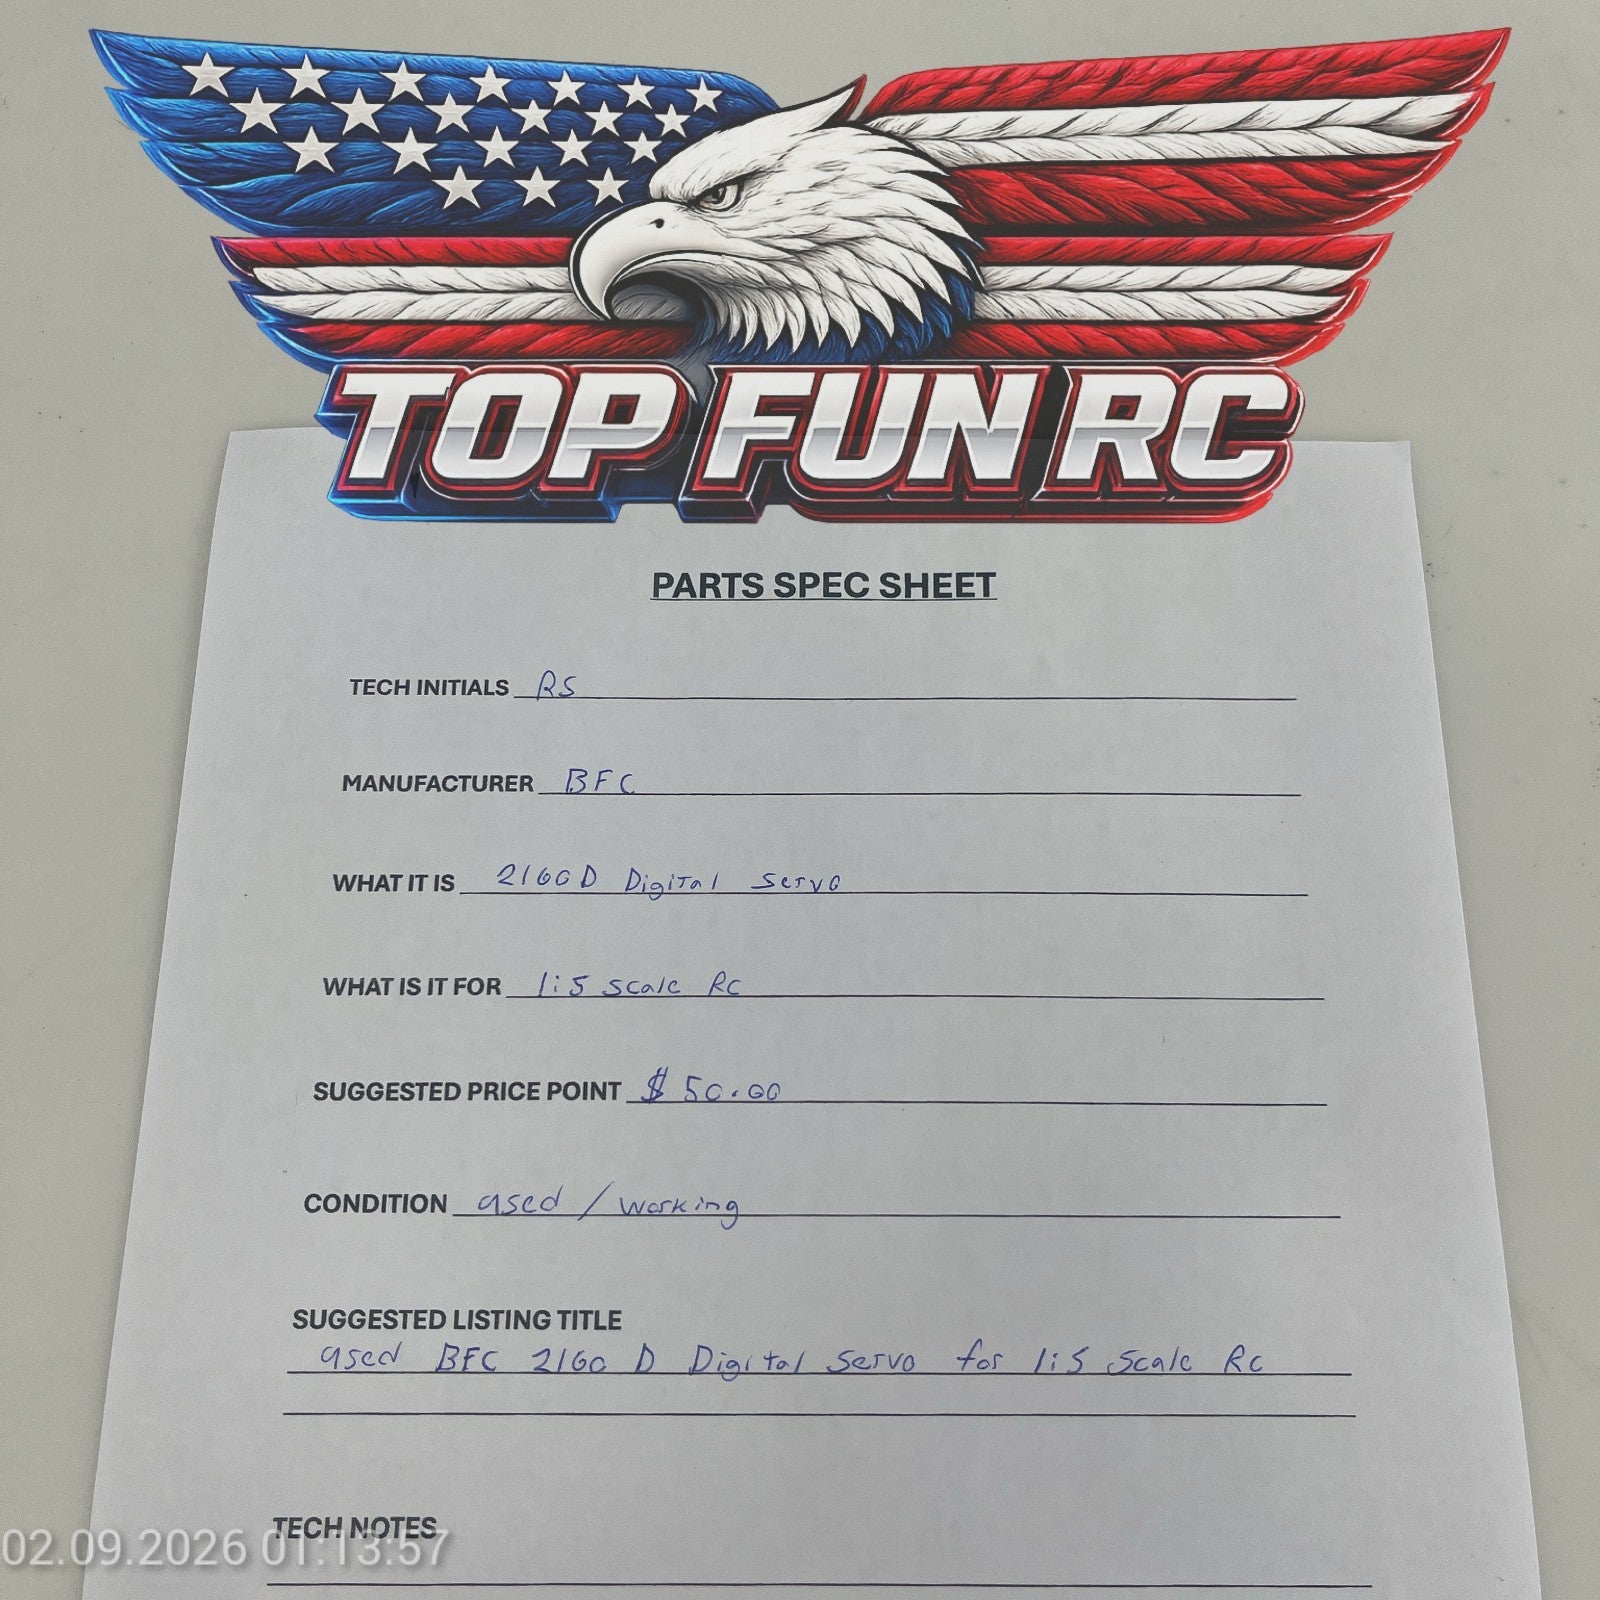 TOP FUN RC
PARTS SPEC SHEET
TECH INITIALS RS
MANUFACTURER BFC
WHAT IT IS 2160D Digital Servo
WHAT IS IT FOR 1:5 scale RC
SUGGESTED PRICE POINT $50.00
CONDITION used / working
SUGGESTED LISTING TITLE
used BFC 2160 D Digital Servo for 1:5 Scale RC
TECH NOTES
02.09.2026 01:13:57